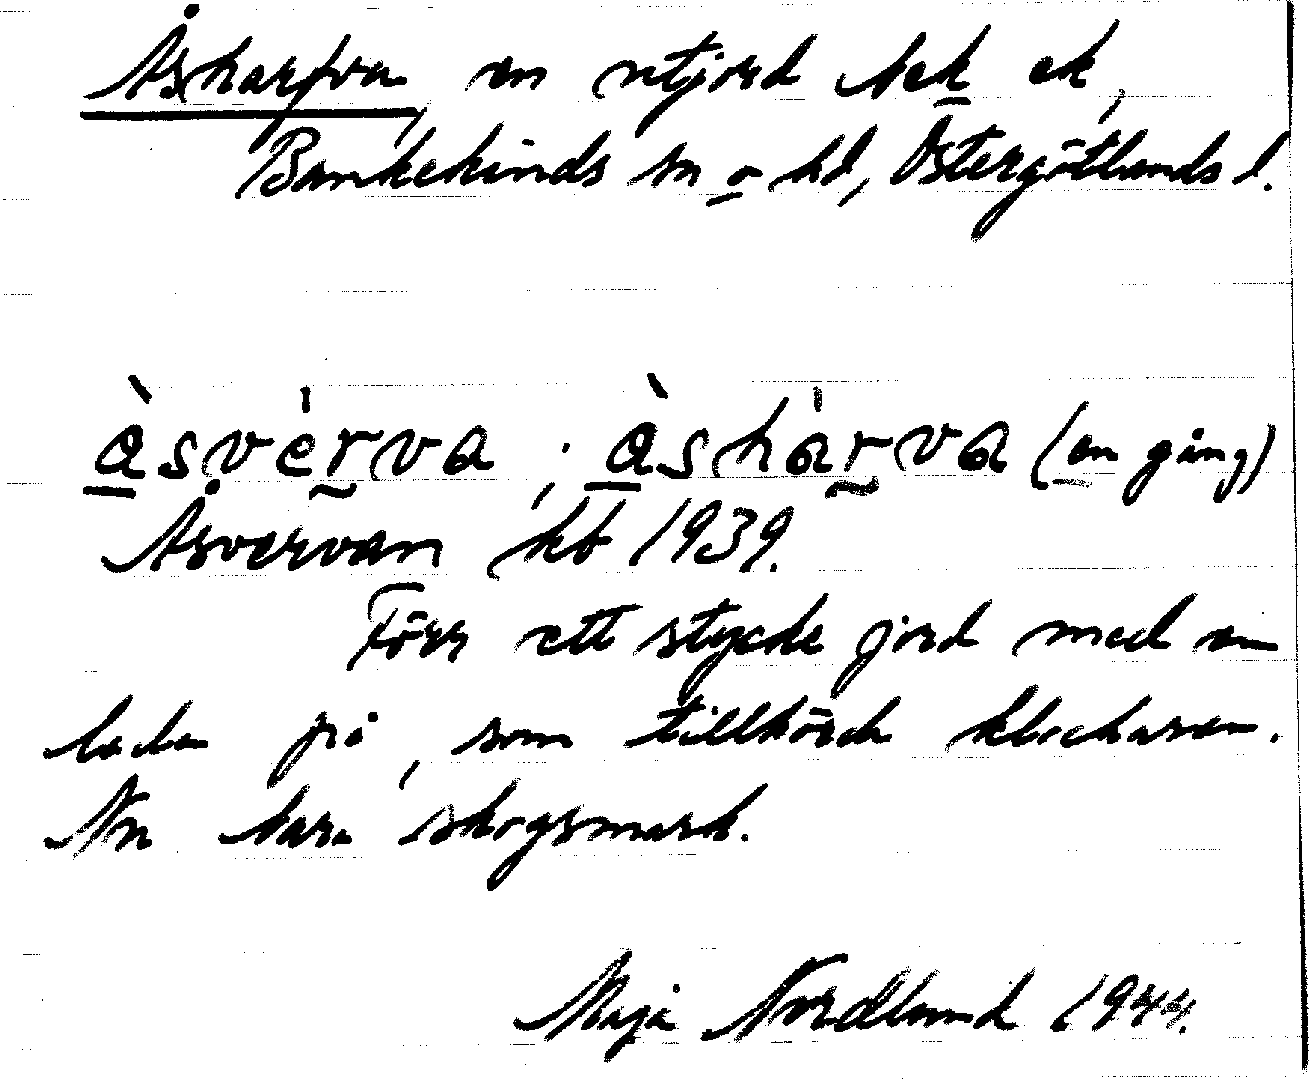 Åskarfva, en utjord bek ek,
Bankekinds sn o hd, Östergötlands l.
àsvėrva, àshȧrva (en gång)
Åsvervan kb 1939.
Förr ett stycke jord med en
lada på, som tillhörde klockaren.
Nu bara skogsmark.
Maja Nordlund 1944.